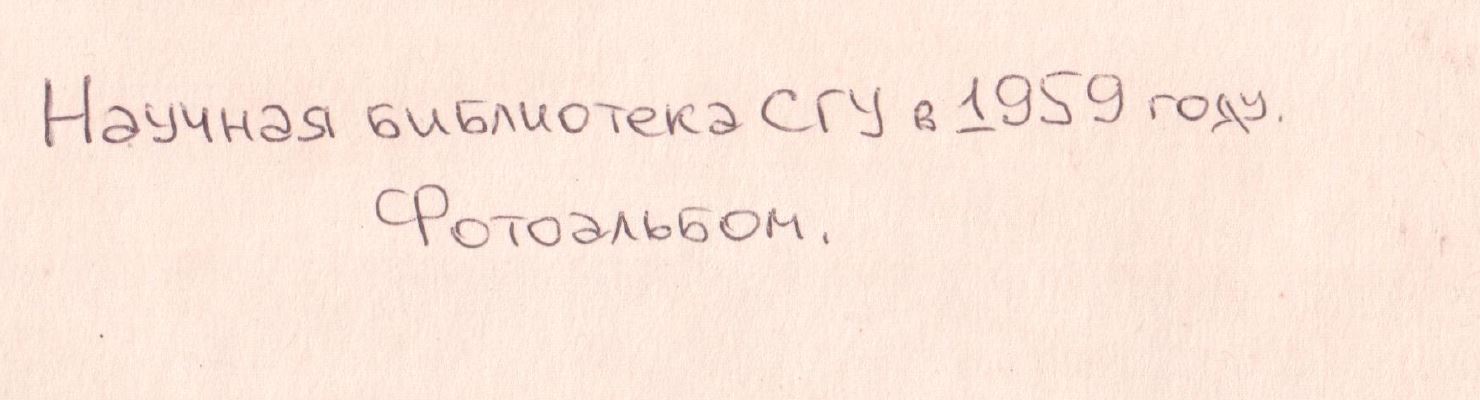 Научная библиотека СГУ в 1959 году.
Фотоальбом.